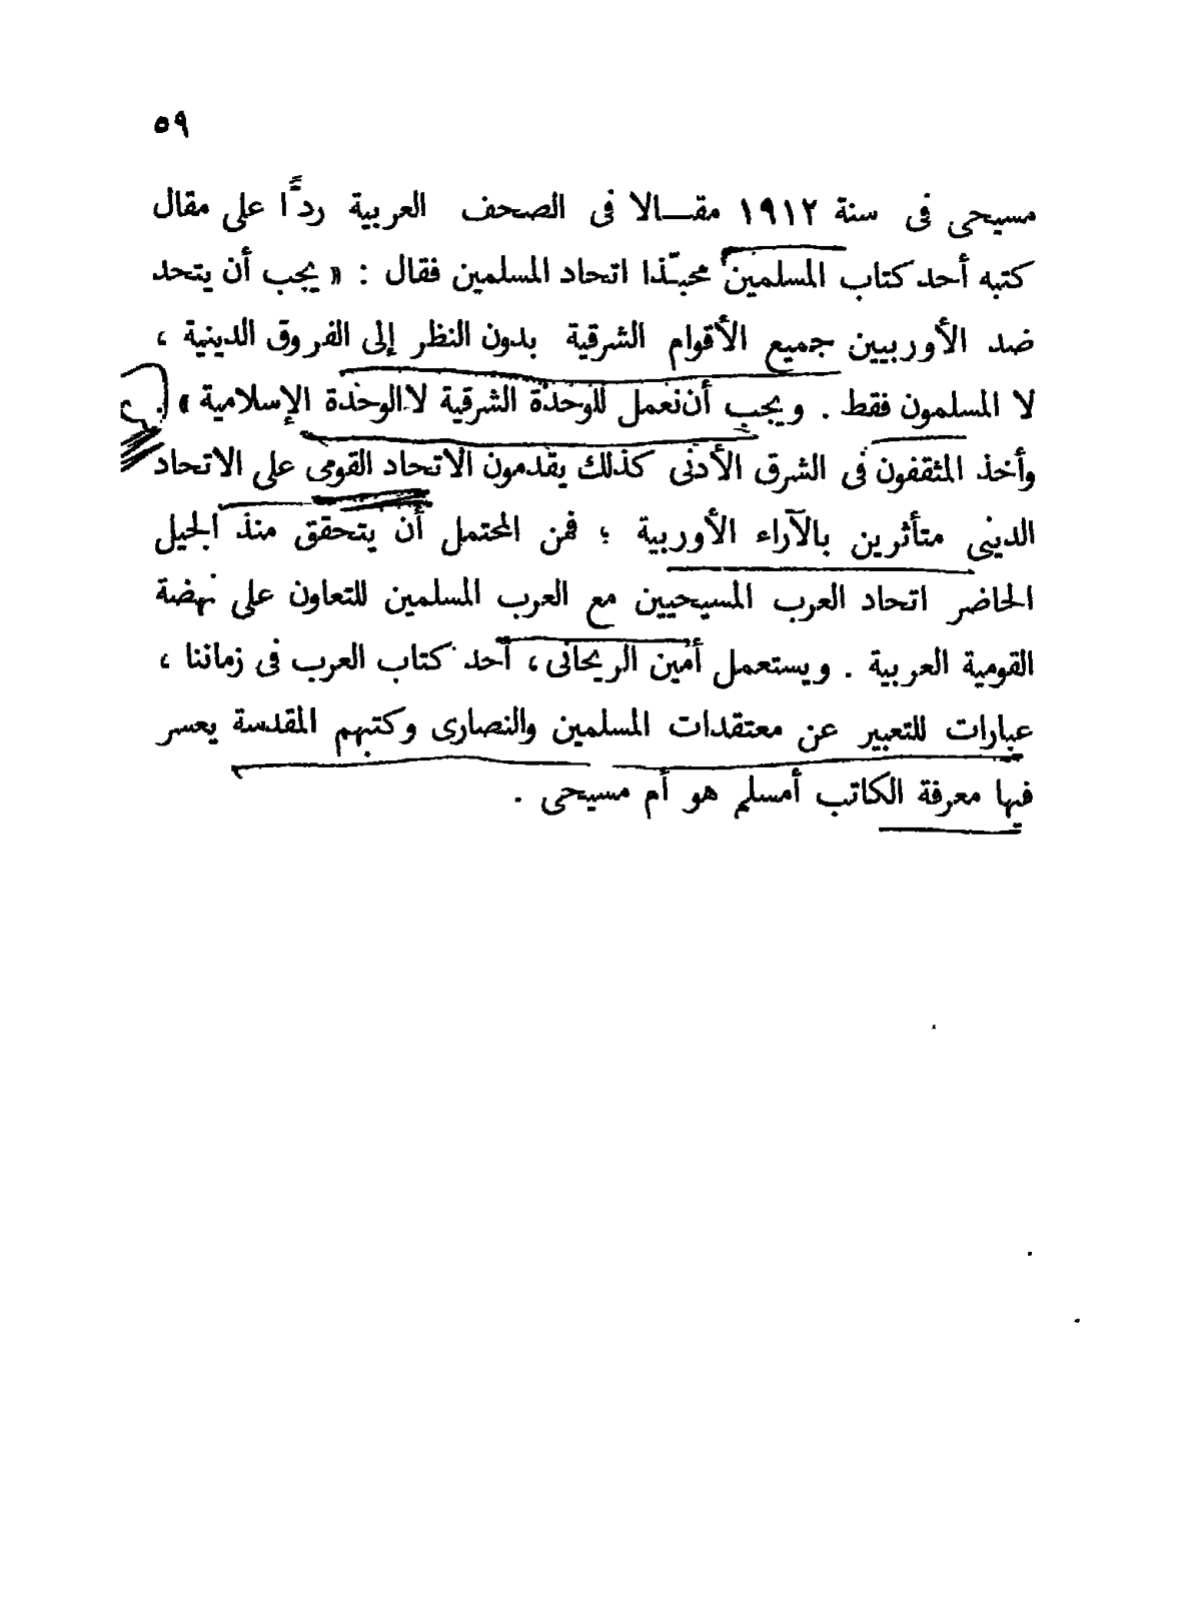 ٥٩
مسيحى فى سنة ١٩١٢ مقـــالا فى الصحف العربية ردًّا على مقال
كتبه أحد كتاب المسلمين محبـّذا اتحاد المسلمين فقال : « يجب أن يتحد
ضد الأوربيين جميع الأقوام الشرقية بدون النظر إلى الفروق الدينية ،
لا المسلمون فقط . ويجب أن نعمل للوحدة الشرقية لا الوحدة الإسلامية » .
وأخذ المثقفون فى الشرق الأدنى كذلك يقدمون الاتحاد القومى على الاتحاد
الدينى متأثرين بالآراء الأوربية ؛ فمن المحتمل أن يتحقق منذ الجيل
الحاضر اتحاد العرب المسيحيين مع العرب المسلمين للتعاون على نهضة
القومية العربية . ويستعمل أمين الريحانى ، أحد كتاب العرب فى زماننا ،
عبارات للتعبير عن معتقدات المسلمين والنصارى وكتبهم المقدسة يعسر
فيها معرفة الكاتب أمسلم هو أم مسيحى .